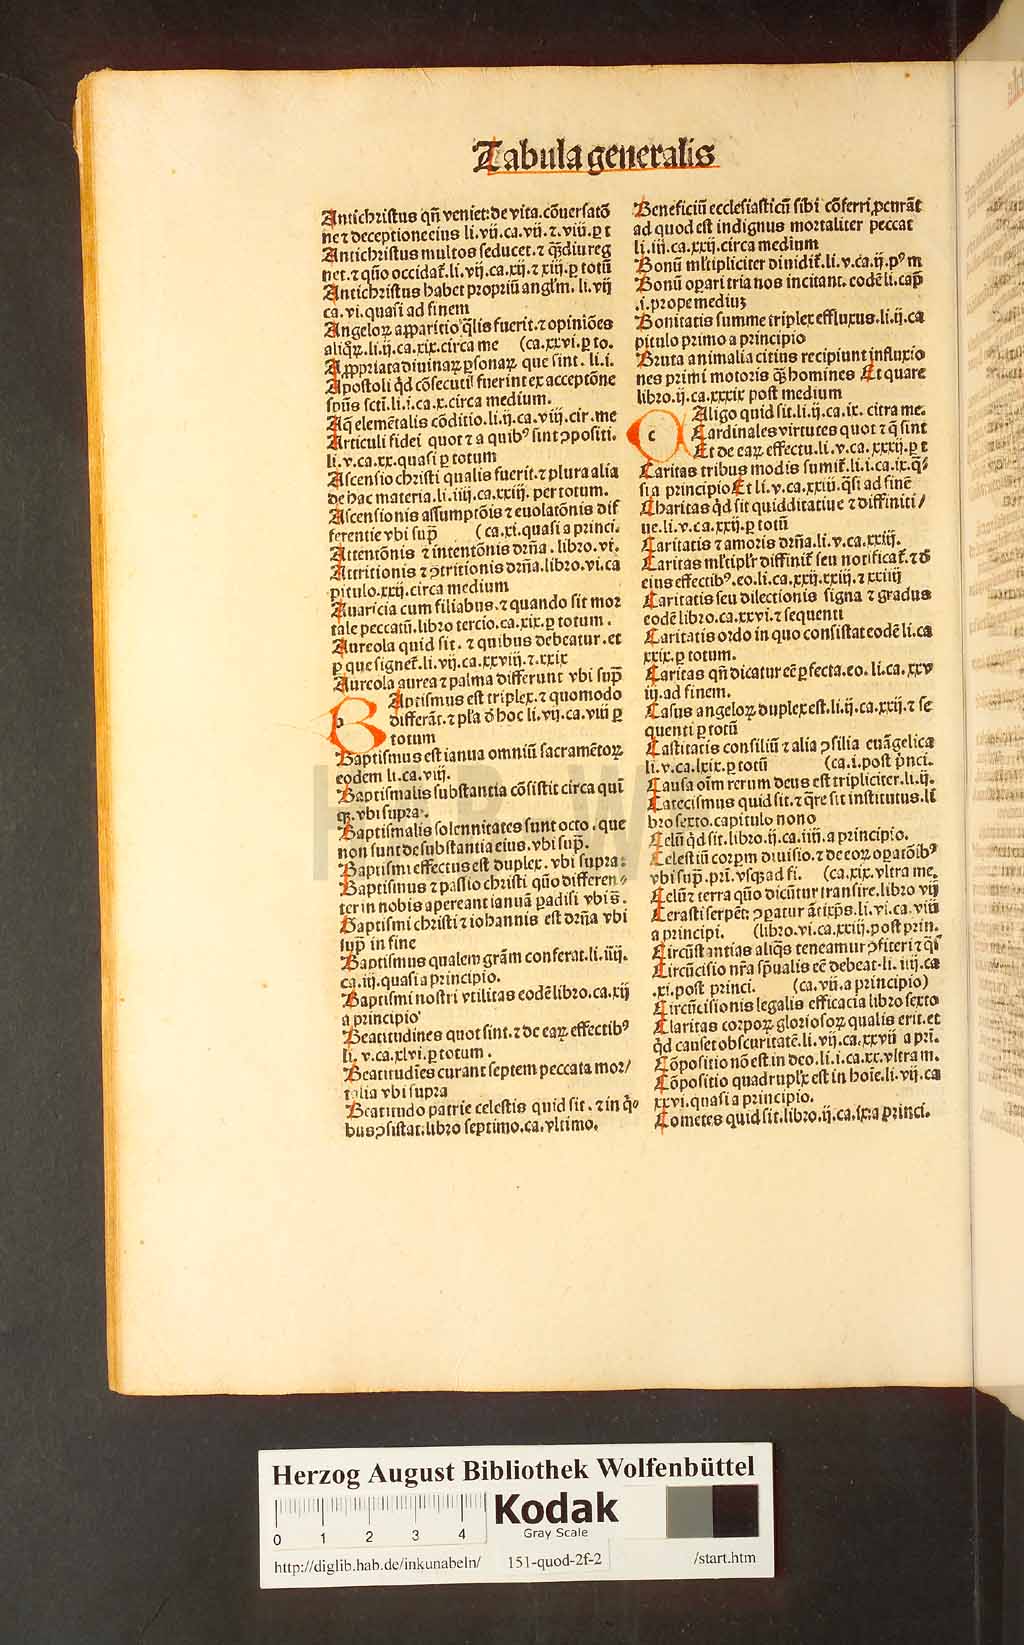 Tabula generalis
Antichristus qñ veniet: de vita. cōuersatō
ne ⁊ deceptione eius li. vij. ca. vij. ⁊. viij. ꝑ t
Antichristus multos seducet. ⁊ qȝdiu reg
net. ⁊ quō occidat̄. li. vij. ca. xij. ⁊ xiij. ꝑ totū
Antichristus habet propriū angl'm. li. vij
ca. vi. quasi ad finem
Angeloꝝ apparitio q̄lis fuerit. ⁊ opiniōes
aliq̄ꝝ. li. ij. ca. xix. circa me (ca. xxvi. ꝑ to.
Appropriata diuinaꝝ ꝑsonaꝝ que sint. li. i.
Apostoli q̇d cōsecuti fuerint ex acceptōne
spūs scti. li. i. ca. x. circa medium.
Aq̄ elemētalis cōditio. li. ij. ca. viij. cir. me
Articuli fidei quot ⁊ a quibꝰ sint ꝯpositi.
li. v. ca. xx. quasi ꝑ totum
Ascensio christi qualis fuerit. ⁊ plura alia
de hac materia. li. iiij. ca. xxiij. per totum.
Ascensionis assumptōis ⁊ euolatōnis dif
ferentie vbi sup̄ (ca. xi. quasi a princi.
Attentōnis ⁊ intentōnis drn̄a. libro. vi.
Attritionis ⁊ ꝯtritionis drn̄a. libro. vi. ca
pitulo. xxij. circa medium
Auaricia cum filiabus. ⁊ quando sit mor
tale peccatū. libro tercio. ca. xix. ꝑ totum.
Aureola quid sit. ⁊ quibus debeatur. et
ꝑ que signet̄. li. vij. ca. xxviij. ⁊. xxix
Aureola aurea ⁊ palma differunt vbi sup̄
b Aptismus est triplex. ⁊ quomodo
differāt. ⁊ pl'a ď hoc li. vij. ca. viij ꝑ
totum
Baptismus est ianua omniū sacramētoꝝ
eodem li. ca. viij.
Baptismalis substantia cōsistit circa qui
qꝫ. vbi supra.
Baptismalis solennitates sunt octo. que
non sunt de substantia eius. vbi sup̄.
Baptismi effectus est duplex. vbi supra:
Baptismus ⁊ passio christi quō differen
ter in nobis apereant ianuā ꝑadisi vbi s̄.
Baptismi christi ⁊ iohannis est drn̄a vbi
sup̄ in fine
Baptismus qualem grām conferat. li. iiij.
ca. iij. quasi a principio.
Baptismi nostri vtilitas eodē libro. ca. xij
a principio
Beatitudines quot sint. ⁊ de eaꝝ effectibꝰ
li. v. ca. xlvi. ꝑ totum.
Beatitudīes curant septem peccata mor/
talia vbi supra
Beatitudo patrie celestis quid sit. ⁊ in q̇
bus ꝯsistat. libro septimo. ca. vltimo.
Beneficiū ecclesiasticū sibi cōferri ꝓcurāt
ad quod est indignus mortaliter peccat
li. iij. ca. xxij. circa medium
Bonū ml'tipliciter diuidit̄. li. v. ca. ij. pꝰ m
Bonū oꝑari tria nos incitant. eodē li. cap̄
.i. prope mediuȝ
Bonitatis summe triplex effluxus. li. ij. ca
pitulo primo a principio
Bruta animalia citius recipiunt influxio
nes primi motoris qȝ homines Et quare
libro. ij. ca. xxxix post medium
c Aligo quid sit. li. ij. ca. ix. citra me.
Cardinales virtutes quot ⁊ q̄ sint
Et de eaꝝ effectu. li. v. ca. xxxij. ꝑ t
Caritas tribus modis sumit̄. li. i. ca. ix. q̄
si a principio Et li. v. ca. xxiij. q̄si ad finē
Charitas q̇d sit quidditatiue ⁊ diffiniti/
ue. li. v. ca. xxij. ꝑ totū
Caritatis ⁊ amoris drn̄a. li. v. ca. xxiij.
Caritas ml'tipl'r diffinit̄ seu notificat̄. ⁊ ď
eius effectibꝰ. eo. li. ca. xxij. xxiij. ⁊ xxiiij
Caritatis seu dilectionis signa ⁊ gradus
eodē libro. ca. xxvi. ⁊ sequenti
Caritatis ordo in quo consistat eodē li. ca
xxix. ꝑ totum.
Caritas qñ dicatur eē ꝑfecta. eo. li. ca. xxv
iij. ad finem.
Casus angeloꝝ duplex est. li. ij. ca. xxij. ⁊ se
quenti ꝑ totū
Castitatis consiliū ⁊ alia ꝯsilia euāgelica
li. v. ca. lxix. ꝑ totū (ca. i. post p̄nci.
Causa oīm rerum deus est tripliciter. li. ij.
Catecismus quid sit. ⁊ q̄re sit institutus. li
bro sexto. capitulo nono
Celū q̇d sit. libro. ij. ca. iiij. a principio.
Celestiū corꝑm diuisio. ⁊ de eoꝝ oꝑatōibꝰ
vbi sup̄. pri. vsqȝ ad fi. (ca. xix. vltra me.
Celū ⁊ terra quō dicūtur transire. libro vij
Cerasti serpēt. ꝯꝑatur ātixp̄s. li. vi. ca. viij
a principi. (libro. vi. ca. xxiij. post prin.
Circūstantias aliq̄s teneamur ꝯfiteri ⁊ q̄s
Circūcisio nr̄a sp̄ualis eē debeat. li. iiij. ca
.xi. post princi. (ca. vij. a principio)
Circūcisionis legalis efficacia libro sexto
Claritas corpoꝝ glorio soꝝ qualis erit. et
q̇d causet obscuritatē. li. vij. ca. xxvij a pri.
Cōpositio nō est in deo. li. i. ca. xx. vltra m.
Cōpositio quadrupl'x est in hoīe. li. vij. ca
xxvi. quasi a principio.
Cometes quid sit. libro. ij. ca. ix. a princi.
HAB-W
Herzog August Bibliothek Wolfenbüttel
0 1 2 3 4
Kodak
Gray Scale
http://diglib.hab.de/inkunabeln/ 151-quod-2f-2 /start.htm